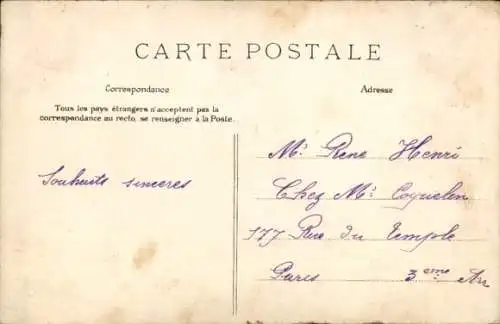 CARTE POSTALE
Correspondance
Adresse
Tous les pays étrangers n'acceptent pas la
correspondance au recto, se renseigner à la Poste.
Souhaits sinceres
Mr Rene Henri
Chez Mr Coquelin
177 Rue du Temple
Paris 3eme Arr